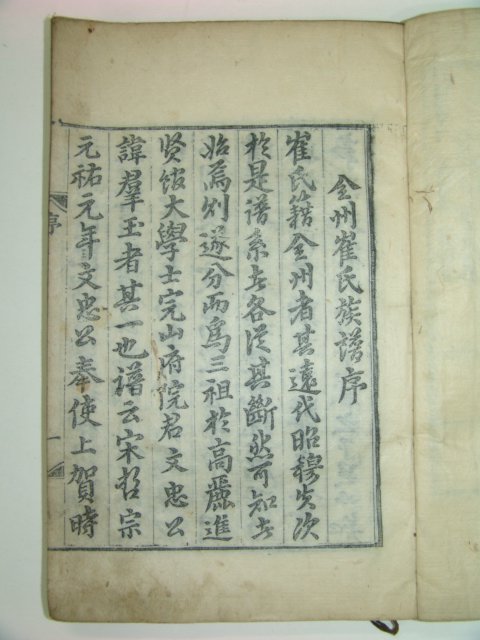 全州崔氏族譜序
崔氏籍全州者其遠代昭穆失次
於是譜系者各從其斷然可知者
始焉則遂分而爲三祖於高麗進
賢館大學士完山府院君文忠公
諱羣玉者其一也譜云宋哲宗
元祐元年文忠公奉使上賀時
序
一